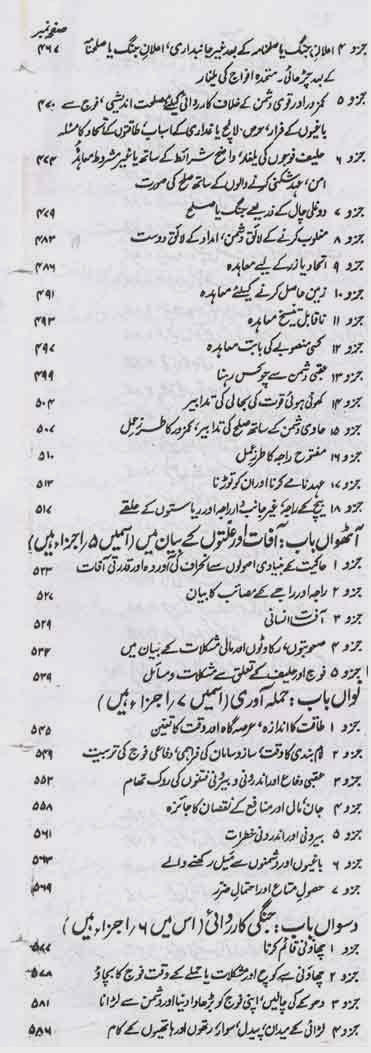 صفحہ نمبر
جزو ۴ اعلانِ جنگ یا صلحنامہ کے بعد غیر جانبداری، اعلانِ جنگ یا صلحنامہ ۴۶۷
کے بعد چڑھائی۔ متحدہ افواج کی یلغار
جزو ۵ کمزور اور قوی دشمن کے خلاف کارروائی کیلئے مصلحت اندیشی، فوج سے ۴۷۰
باغیوں کے فرار، حرص، لالچ یا غداری کے اسباب، طاقتوں کے اتحاد کا مسئلہ
جزو ۶ حلیف فوجوں کی یلغار، واضح شرائط کے ساتھ یا غیر مشروط معاہدہ ۴۷۴
امن، عہد شکنی کرنے والوں کے ساتھ صلح کی صورت
جزو ۷ دوغلی چال کے ذریعے جنگ یا صلح ۴۷۹
جزو ۸ مغلوب کرنے کے لائق دشمن، امداد کے لائق دوست ۴۸۳
جزو ۹ اتحاد یا زر کے لیے معاہدہ ۴۸۶
جزو ۱۰ زمین حاصل کرنے کیلئے معاہدہ ۴۹۱
جزو ۱۱ ناقابل تنسیخ معاہدہ ۴۹۳
جزو ۱۲ کسی منصوبے کی بابت معاہدہ ۴۹۷
جزو ۱۳ عقبی دشمن سے چوکس رہنا ۴۹۹
جزو ۱۴ کھوئی ہوئی قوت کی بحالی کی تدابیر ۵۰۴
جزو ۱۵ حاوی دشمن کے ساتھ صلح کی تدابیر، کمزور کا طرزِ عمل ۵۰۷
جزو ۱۶ مفتوح راجہ کا طرزِ عمل ۵۱۰
جزو ۱۷ عہد نامے کرنا اور ان کو توڑنا ۵۱۳
جزو ۱۸ بیچ کے راجہ، غیر جانبدار راجہ اور ریاستوں کے حلقے ۵۱۷
آٹھواں باب: آفات اور علتوں کے بیان میں (اسمیں ۵ / اجزاء ہیں)
جزو ۱ حاکمیت کے بنیادی اصولوں سے انحراف کی آوردہ اور قدرتی آفات ۵۲۳
جزو ۲ راجہ اور راجے کے مصائب کا بیان ۵۲۷
جزو ۳ آفتِ انسانی ۵۲۹
جزو ۴ صعوبتوں، رکاوٹوں اور مالی مشکلات کے بیان میں ۵۳۴
جزو ۵ فوج اور حلیف کے تعلق سے مشکلات و مسائل ۵۳۹
نواں باب: حملہ آوری (اسمیں ۷ / اجزاء ہیں)
جزو ۱ طاقت کا اندازہ، عرصہ گاہ اور وقت کا تعین ۵۴۵
جزو ۲ لام بندی کا وقت، ساز و سامان کی فراہمی، دفاعی فوج کی تربیت ۵۴۹
جزو ۳ عقبی دفاع اور اندرونی و بیرونی فتنوں کی روک تھام ۵۵۳
جزو ۴ جان، مال اور منافع کے نقصان کا جائزہ ۵۵۸
جزو ۵ بیرونی اور اندرونی خطرات ۵۶۱
جزو ۶ باغیوں اور دشمنوں سے میل رکھنے والے ۵۶۳
جزو ۷ حصولِ متاع اور احتمالِ ضرر ۵۶۹
دسواں باب: جنگی کارروائی (اس میں ۶ / اجزاء ہیں)
جزو ۱ چھاؤنی قائم کرنا ۵۷۷
جزو ۲ چھاؤنی سے کوچ اور مشکلات یا حملے کے وقت فوج کا بچاؤ ۵۷۸
جزو ۳ دھوکے کی چالیں، اپنی فوج کو بڑھاوا دینا اور دشمن سے لڑانا ۵۸۱
جزو ۴ لڑائی کے میدان، پیدل، سوار، رتھوں اور ہاتھیوں کے کام ۵۸۶